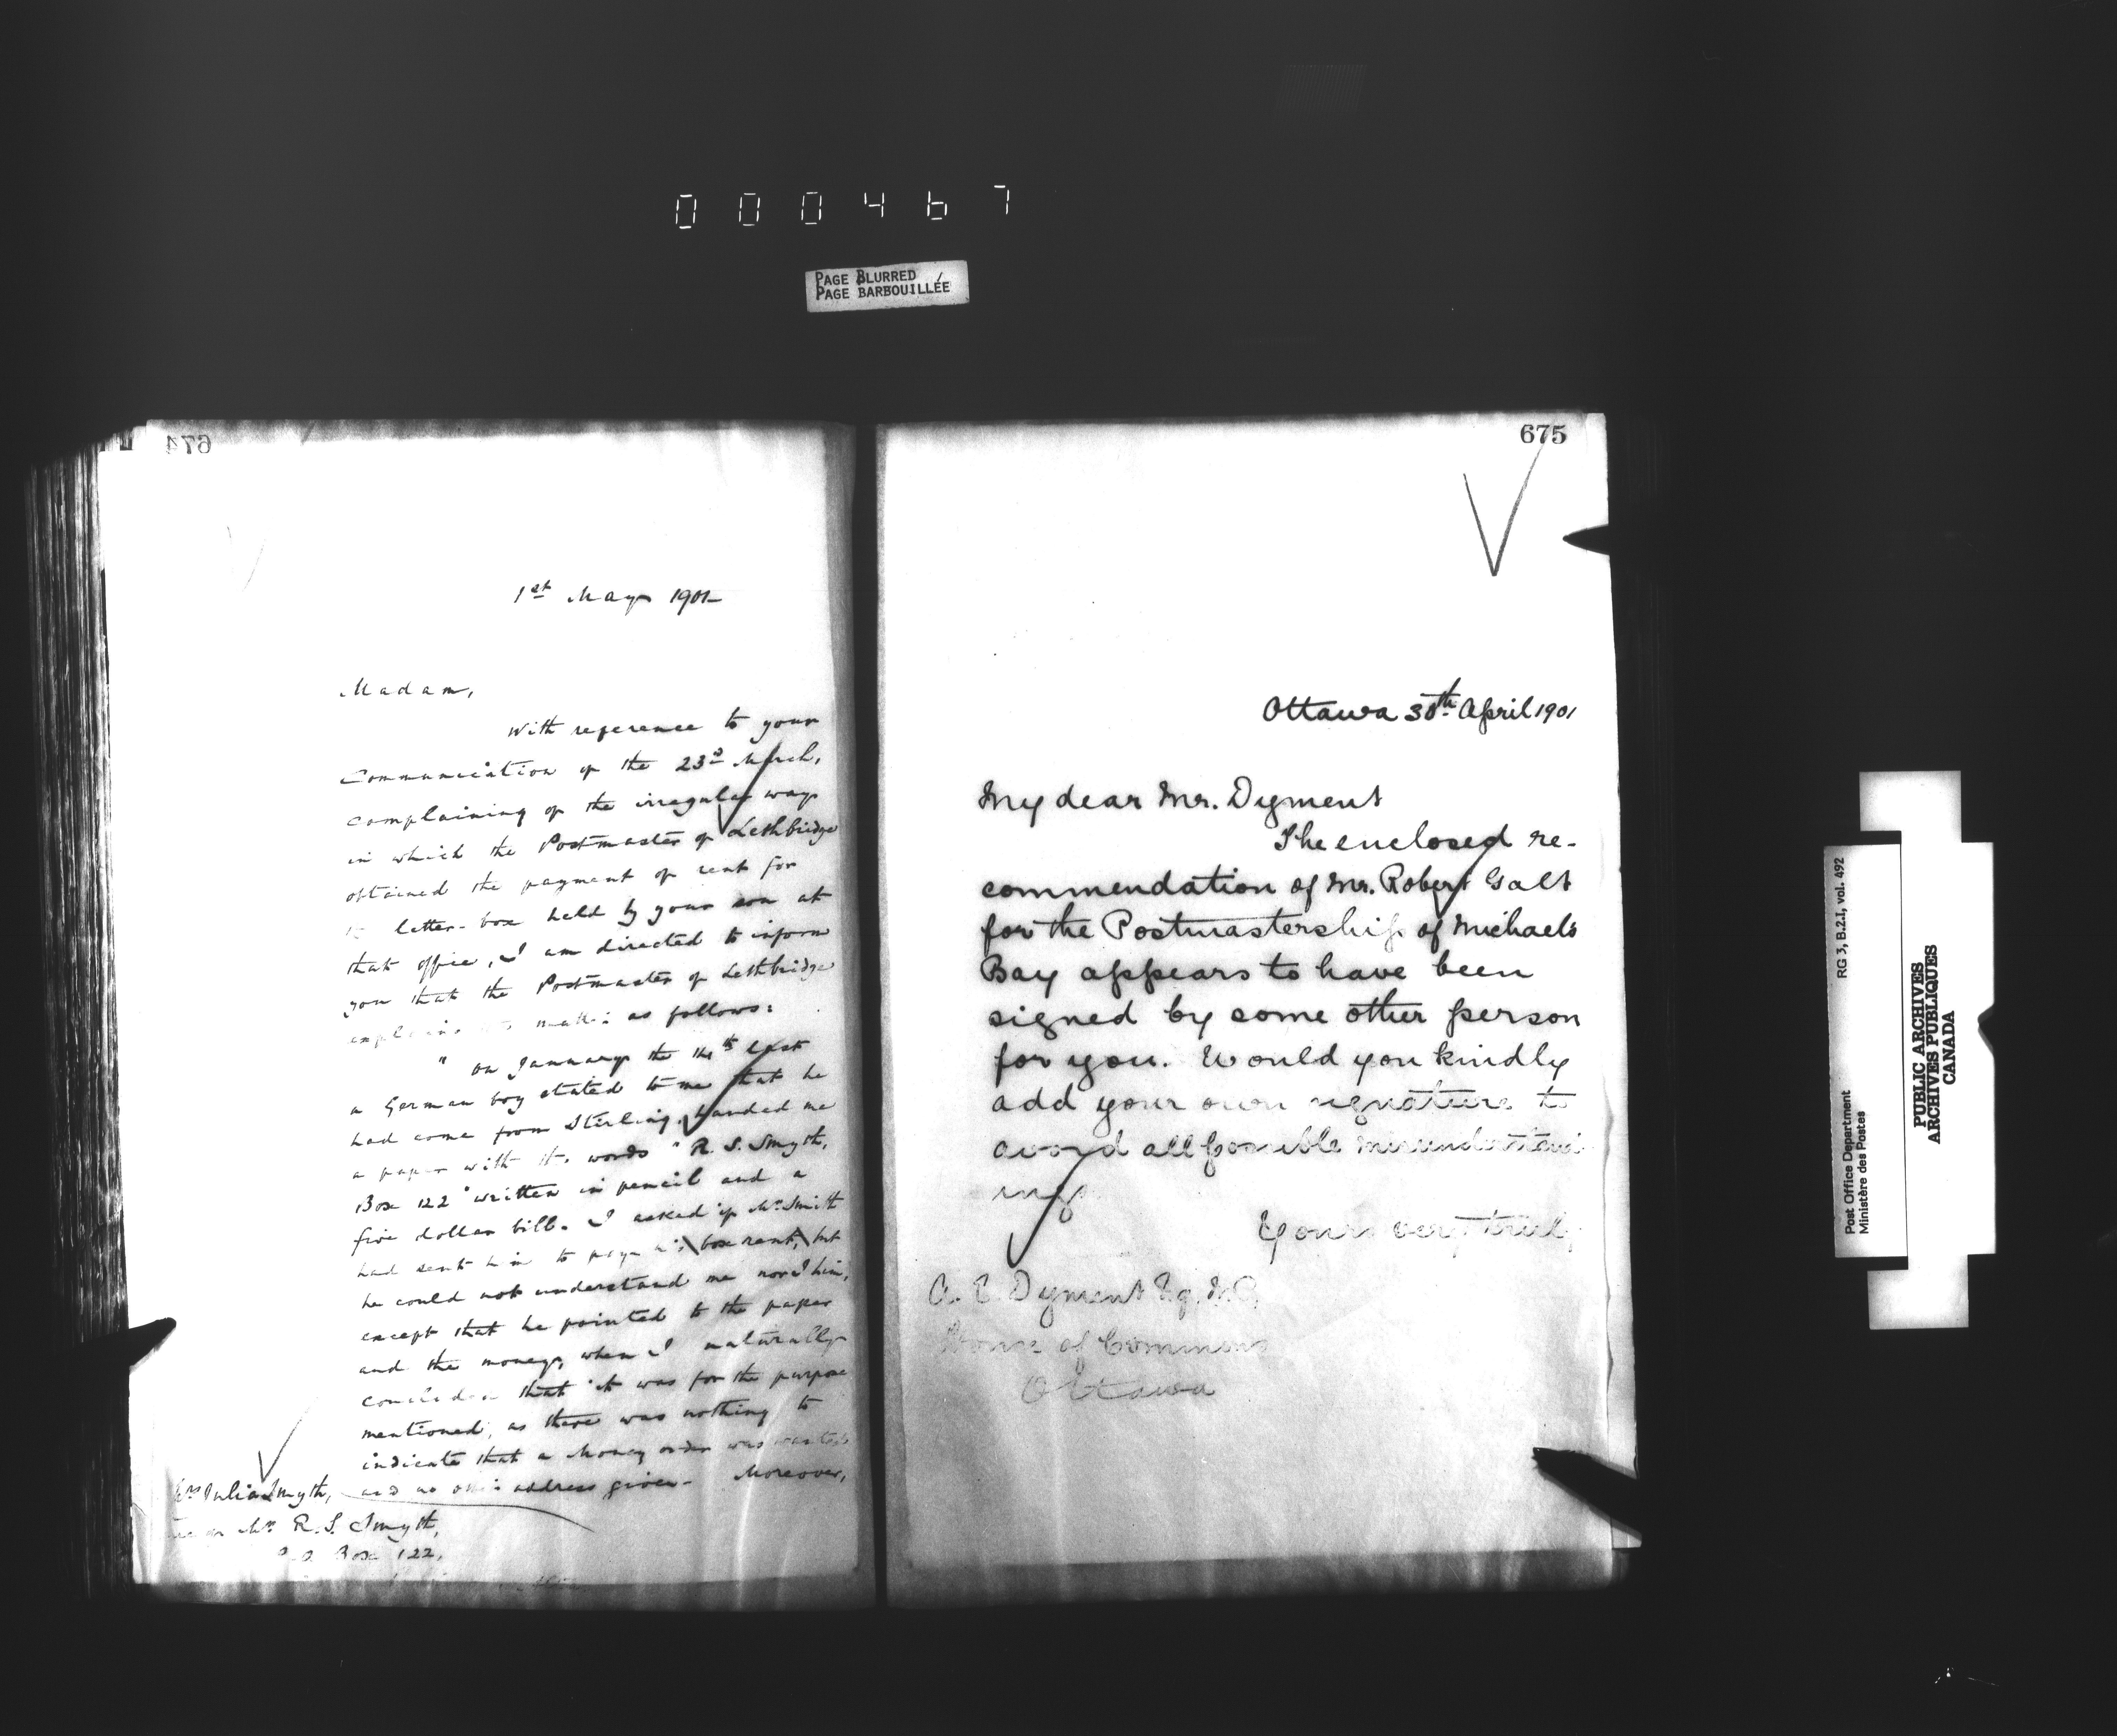 000467
PAGE BLURRED
PAGE BARBOUILLÉE
674
1st May 1901
Madam,
With reference to your
communication of the 23rd March,
complaining of the irregular way
in which the Postmaster of Lethbridge
obtained the payment of rent for
letter-box held by your son at
that office, I am directed to inform
you that the Postmaster of Lethbridge
explains as follows:
" On January the 14th last
a German boy stated to me that he
had come from Sterling, handed me
a paper with the words "R. S. Smyth,
Box 122" written in pencil and a
five dollar bill. I asked if Mr Smith
had sent him to pay his box rent, but
he could not understand me nor I him,
except that he pointed to the paper
and the money, when I naturally
concluded that it was for the purpose
mentioned, as there was nothing to
indicate that a Money order was wanted
and no address given. Moreover,
Mrs Julia Smyth,
Mr R. S. Smyth,
P.O. Box 122,
675
Ottawa 30th April 1901
My dear Mr. Dyment
The enclosed re-
commendation of Mr. Robert Galt
for the Postmastership of Michaels
Bay appears to have been
signed by some other person
for you. Would you kindly
add your own signature to
avoid all possible misunderstand
ing.
Yours very truly,
A. E. Dyment Esq. M.P.
House of Commons
Ottawa
RG 3, B.2.1, vol. 492
Post Office Department
Ministère des Postes
PUBLIC ARCHIVES
ARCHIVES PUBLIQUES
CANADA